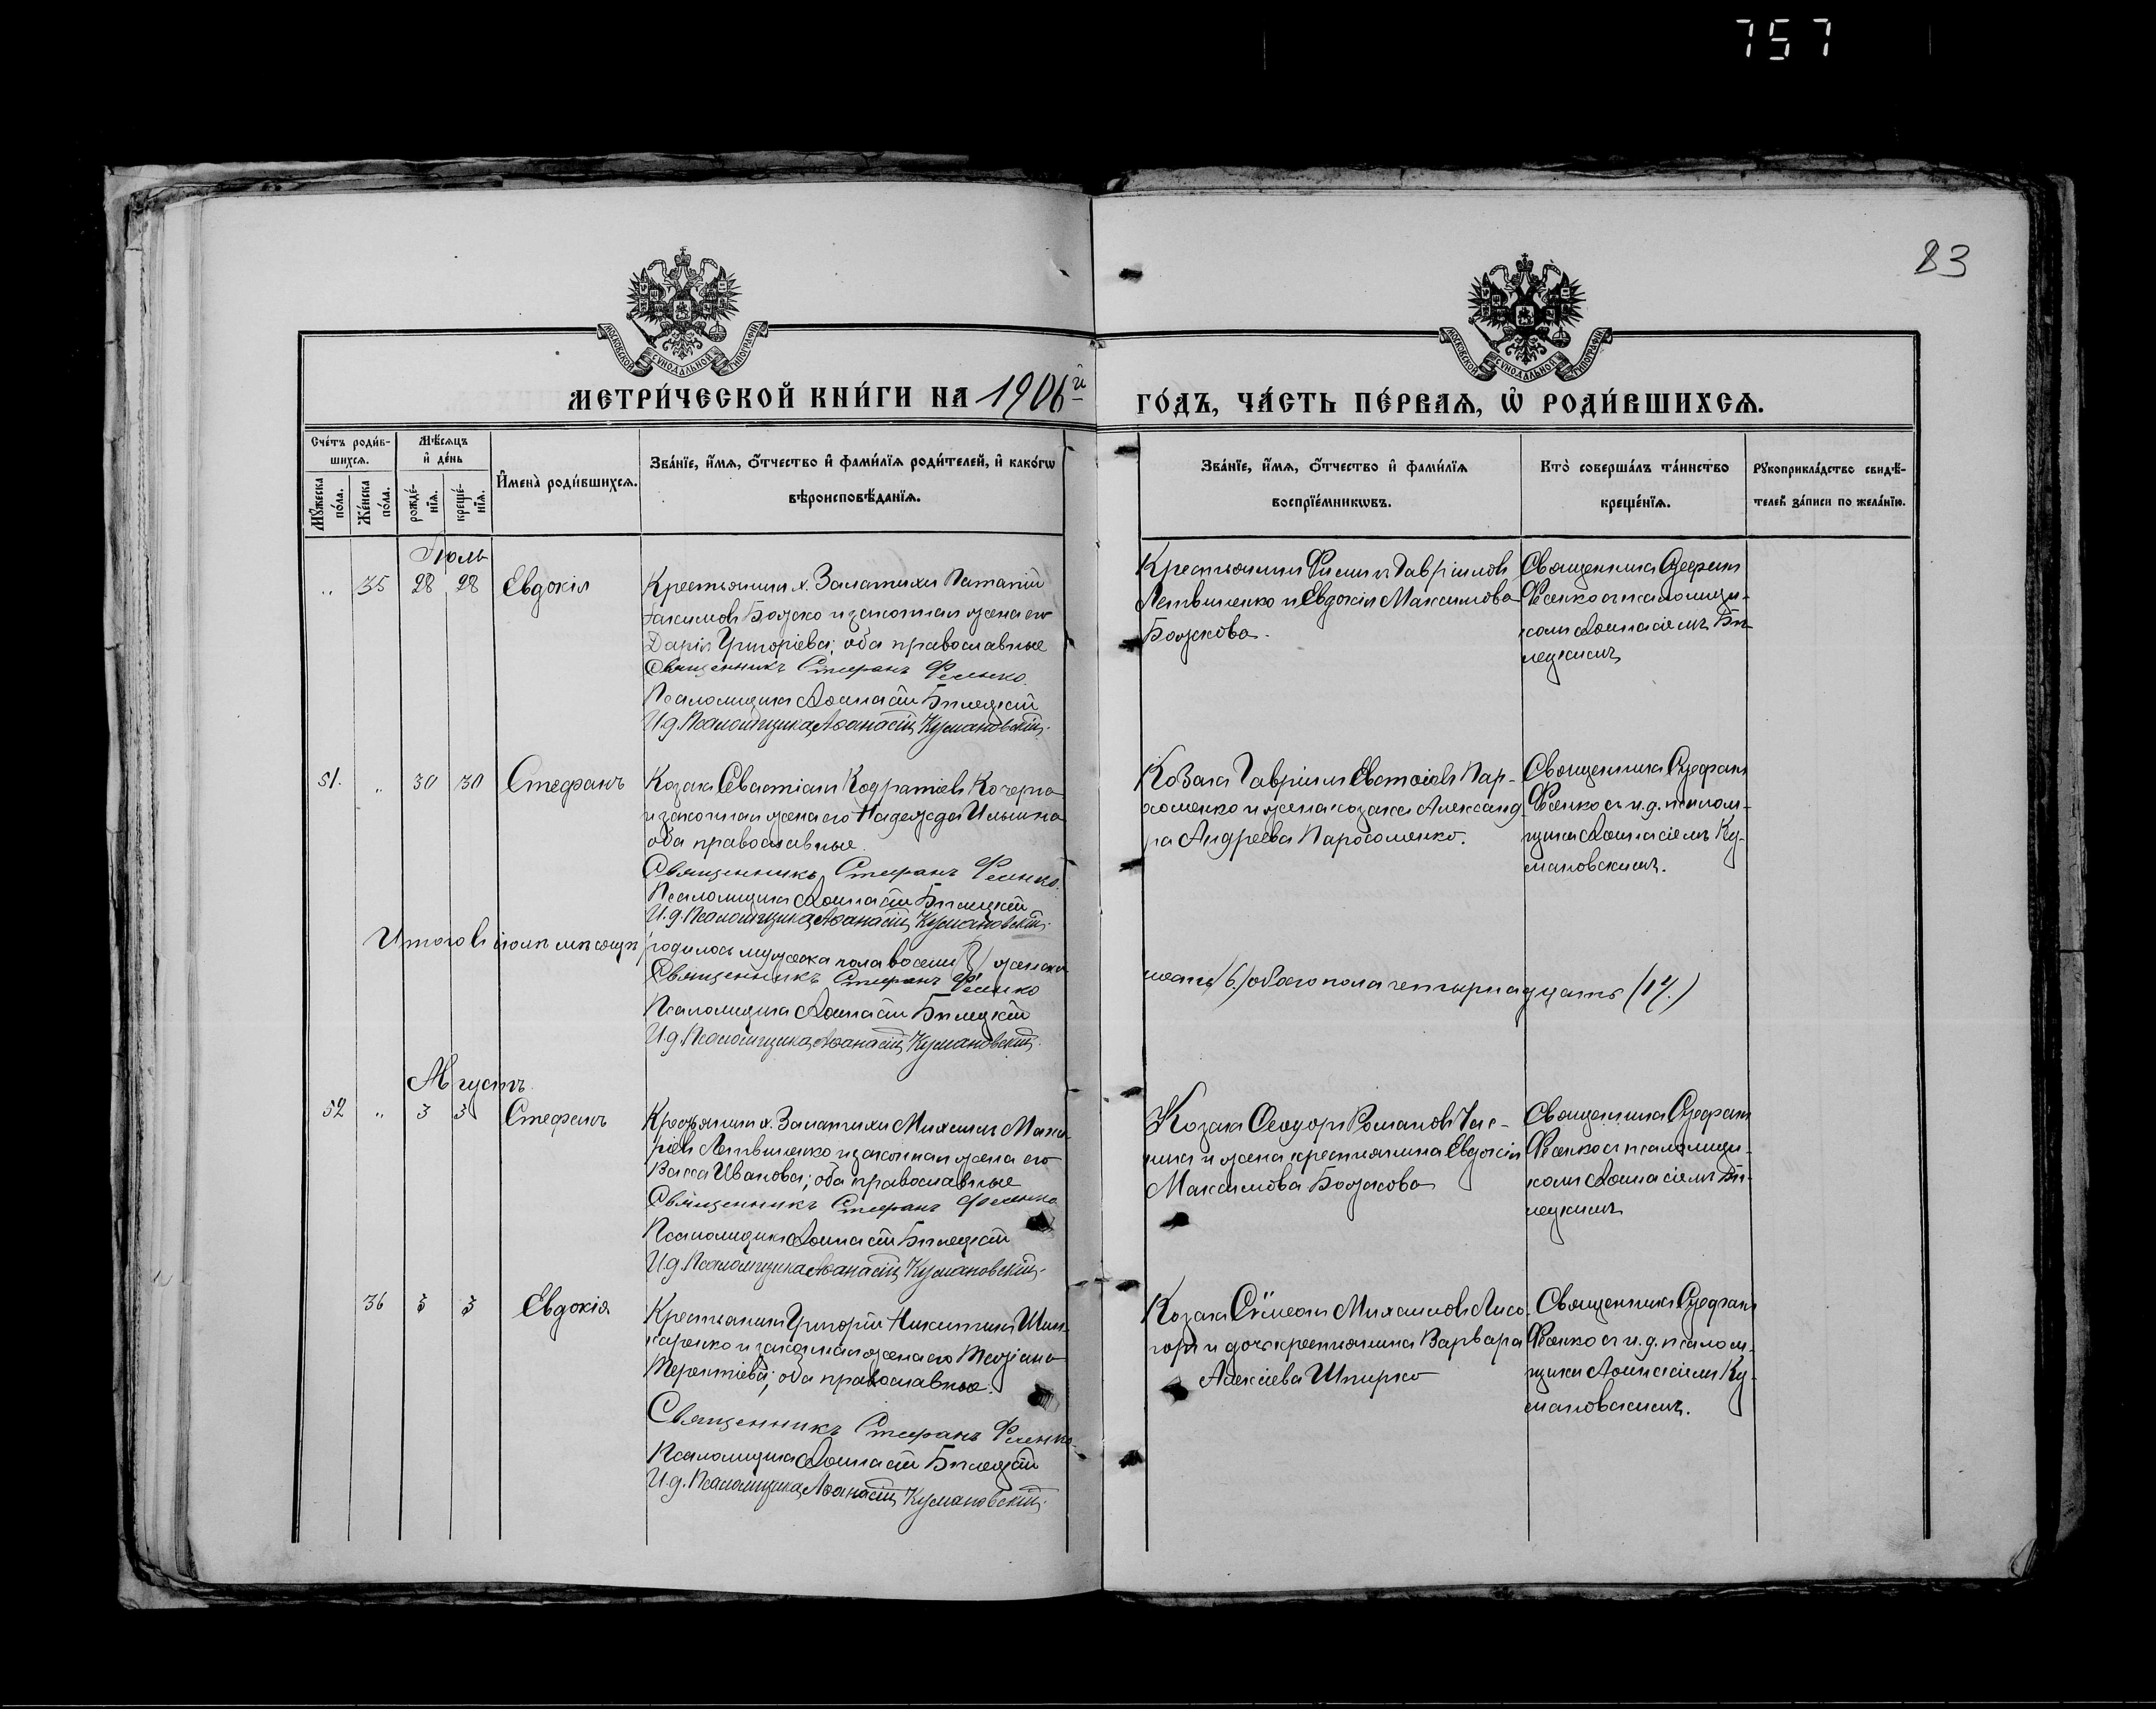 757
83
МОСКОВСКОЙ СѴНОДАЛЬНОЙ ТИПОГРАФІИ
МОСКОВСКОЙ СѴНОДАЛЬНОЙ ТИПОГРАФІИ
МЕТРИ́ЧЕСКОЙ КНИ́ГИ НА 1906й
ГО́ДЪ, ЧА́СТЬ ПЕ́РВАѦ, Ѡ҆ РОДИ́ВШИХСѦ.
Сче́тъ роди́в-
шихсѧ.
Мꙋ́жеска по́ла.
Же́нска по́ла.
Мѣ́сѧцъ
и҆ де́нь
рожде́-нїѧ.
креще́-нїѧ.
И҆мена̀ роди́вшихсѧ.
Зва́нїе, и҆́мѧ, о҆́тчество и҆ фами́лїѧ роди́телей, и҆ како́гѡ
вѣроисповѣ́данїѧ.
Зва́нїе, и҆́мѧ, о҆́тчество и҆ фами́лїѧ
воспрїе́мникѡвъ.
Кто̀ соверша́лъ та́инство
креще́нїѧ.
Рꙋкоприкла́дство свидѣ́-
телей за́писи по жела́нїю.
Іюль
" 35 28 28 Евдокія
Крестьянинъ х. Запатихи Потапій
Божко и законная жена его
Дарія Григоріева; оба православные
Священникъ Стефанъ Фесенко.
Псаломщикъ Аѳанасій Билецкій
И.д. Псаломщика Аѳанасій Кумановскій.
Крестьянинъ Филиппъ Гавріиловъ
Литвиненко и Евдокія Максимова
Божкова.
Священникъ Стефанъ
Фесенко съ псаломщи-
комъ Аѳанасіемъ Би-
лецкимъ
51. " 30 30 Стефанъ
Козакъ Севастіанъ Кодратіевъ Кочерга
и законная жена его Надежда Ильина
оба православные.
Священникъ Стефанъ Фесенко.
Псаломщикъ Аѳанасій Билецкій
И.д. Псаломщика Аѳанасій Кумановскій.
Козакъ Гавріилъ Евстаѳіевъ Пар-
ѳоменко и жена козака Александ-
ра Андреева Парѳоменко.
Священникъ Стефанъ
Фесенко съ и.д. псалом-
щика Аѳанасіемъ Ку-
мановскимъ.
Итого въ іюлѣ мѣсяцѣ родилось мужеска пола восемь (8) женска
шесть (6.) обоего пола четырнадцать (14.)
Священникъ Стефанъ Фесенко
Псаломщикъ Аѳанасій Билецкій
И.д. Псаломщика Аѳанасій Кумановскій.
Августъ.
52 " 3 3 Стефанъ
Крестьянинъ х. Запатихи Михаилъ Мака-
ріевъ Литвиненко и законная жена его
Васса Иванова; оба православные
Священникъ Стефанъ Фесенко
Псаломщикъ Аѳанасій Билецкій
И.д. Псаломщика Аѳанасій Кумановскій.
Козакъ Ѳеодоръ Романовъ
и жена крестьянина Евдокія
Максимова Божкова
Священникъ Стефанъ
Фесенко съ псаломщи-
комъ Аѳанасіемъ Би-
лецкимъ
36 3 3 Евдокія
Крестьянинъ Григорій Никитинъ Шин-
каренко и законная жена его Татіана
Терентіева; оба православные.
Священникъ Стефанъ Фесенко.
Псаломщикъ Аѳанасій Билецкій
И.д. Псаломщика Аѳанасій Кумановскій.
Козакъ Сѵмеонъ Михаиловъ Лисо-
горъ и дочь крестьянина Варвара
Алексіева Шпирко
Священникъ Стефанъ
Фесенко съ и.д. псалом-
щика Аѳанасіемъ Ку-
мановскимъ.